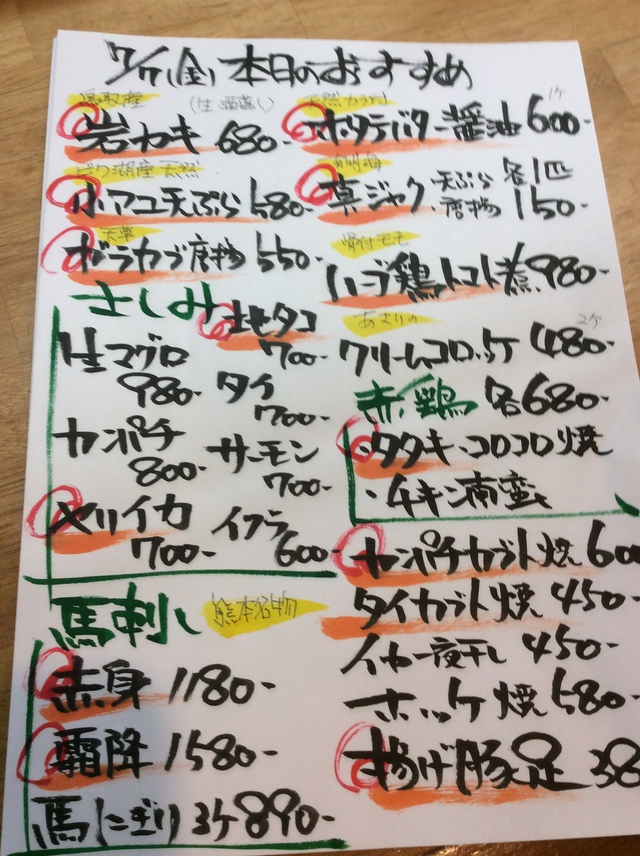 7/7(金)本日のおすすめ
鳥取産
(生 酒蒸し)
岩カキ 680-
ビワ湖産 天然
小アユ天ぷら 580-
天草
ガラカブ唐揚 550-
さしみ
地タコ
700-
生マグロ
980-
タイ
700-
カンパチ
800-
サーモン
700-
ヤリイカ
700-
イクラ
600-
馬刺し
熊本名物
赤身 1180-
霜降 1580-
馬にぎり 3ケ 890-
1ケ
ホタテバター醤油 600-
有明海
真ジャク 天ぷら 各1匹
唐揚 150-
骨付モモ
ハーブ鶏トマト煮 980-
あさりの
2ケ
クリームコロッケ 480-
赤鶏 各680-
・タタキ・コロコロ焼
・チキン南蛮
カンパチカブト焼 600
タイカブト焼 450-
イカ一夜干し 450-
ホッケ焼 580-
揚げ豚足 38